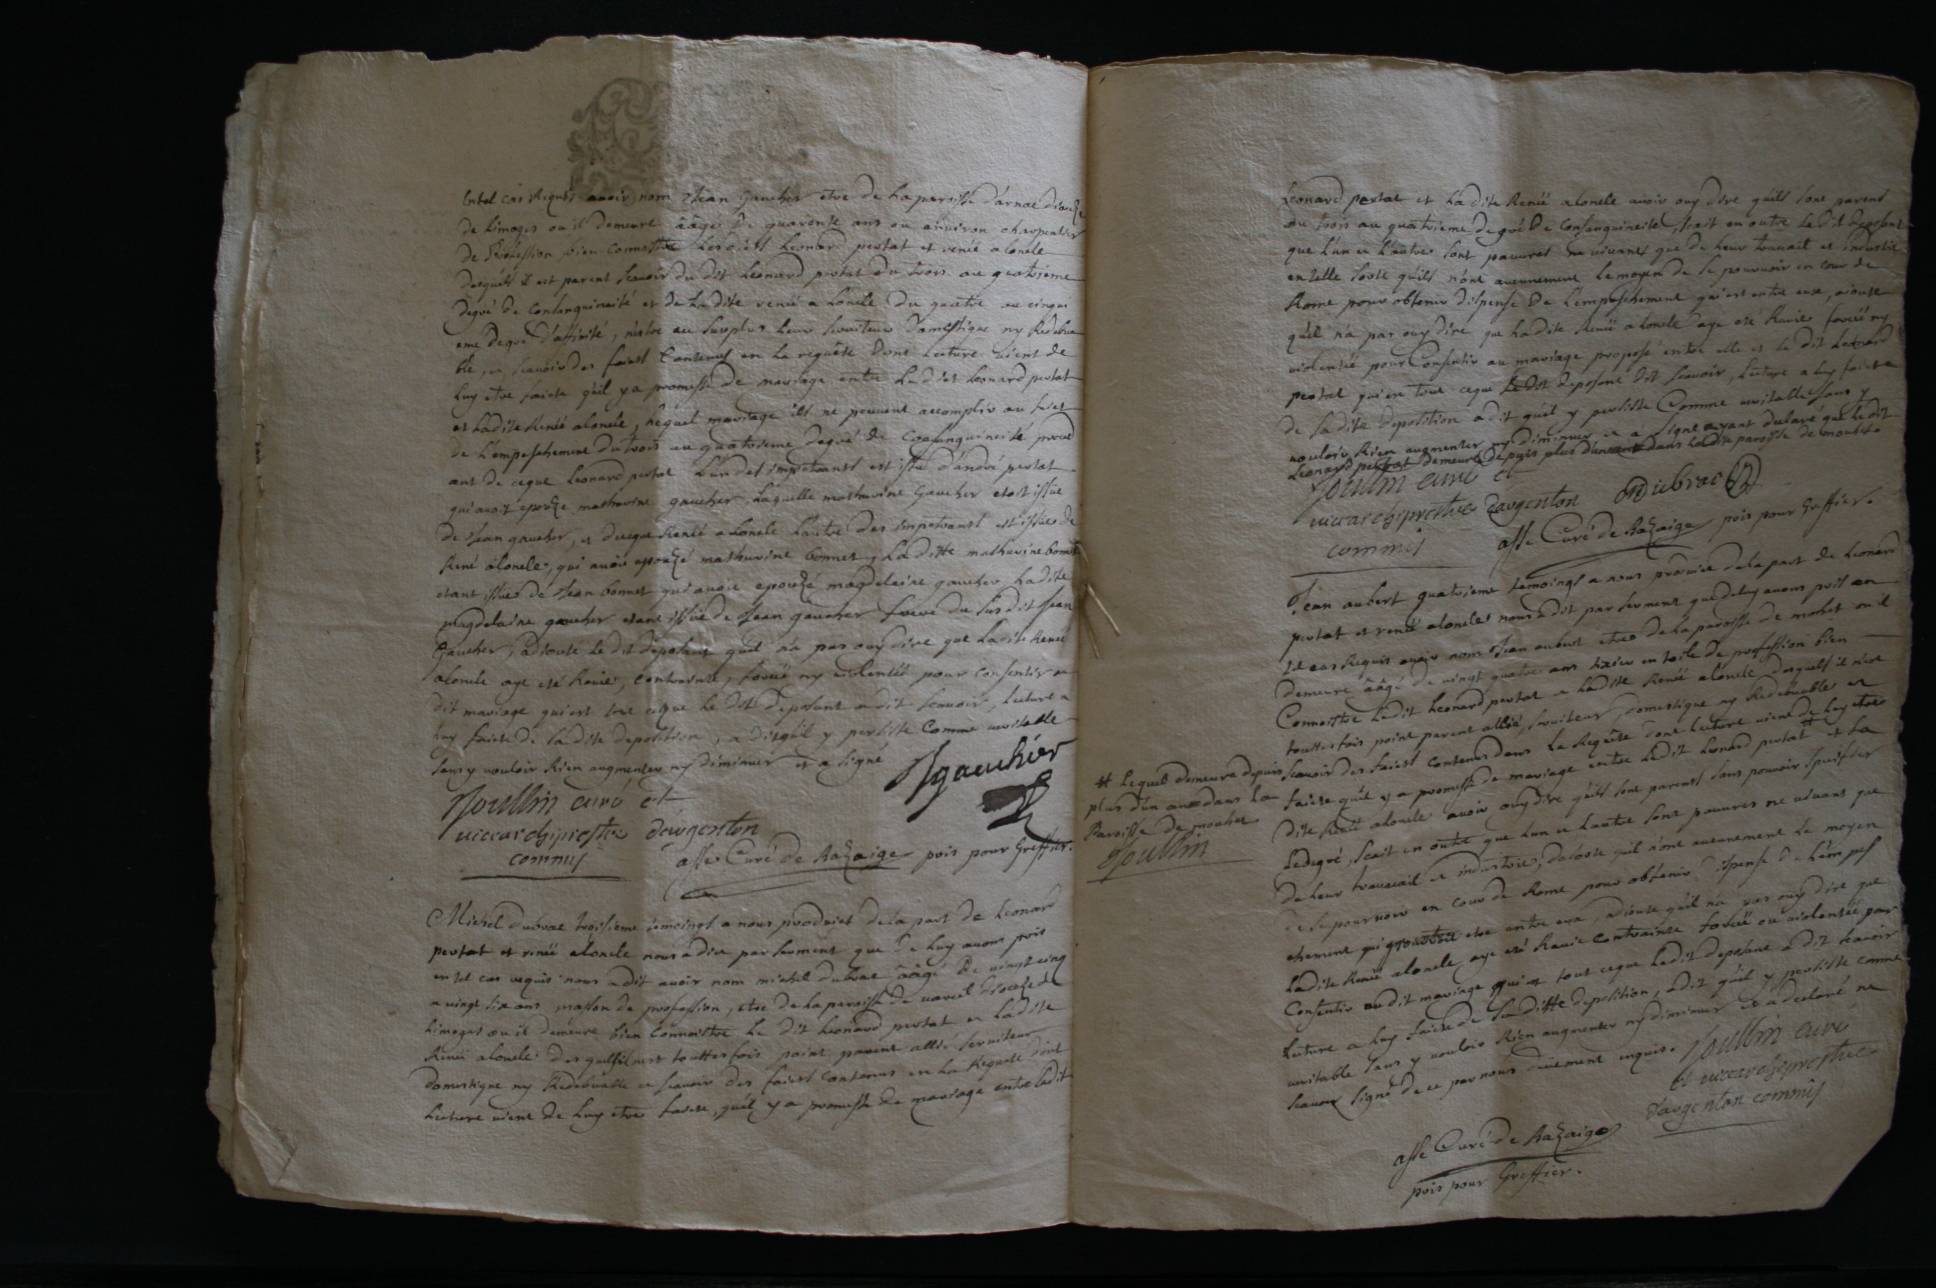 en tel cas requis avoir nom Jean Gaucher etre de la paroisse d'arnac dioceze
de limoges ou il demeure ââgé de quarente ans ou anviron charpentier
de Profession bien connoistre lesdits Leonard pertat et renée alonele
desquels il est parent scavoir du dit Leonard pertat du trois au quatrieme
degré de consanguineité et de ladite renée alonele du quatre au cinqui
eme degré d'affinité, n'estre au surplus leur serviteur domestique ny Redeva
ble, et scavoir des faicts contenus en la requête dont lecture vient de
luy etre faicte qu'il y a promesse de mariage entre ledit Leonard pertat
et ladite Renée alonele, lequel mariage ils ne peuvent accomplir au sujet
de l'empeschement du trois au quatrieme degré de consanguineité proced
ant de ceque Leonard pertat l'un des impetrants est issu d'andré pertat
qui avoit épouzé mathurine gaucher laquelle mathurine Gaucher etoit issüe
de Jean gaucher, et de ceque Renée alonele l'autre des impetrants est issüe de
René alonele, qui avoit épouzé mathurine bonnet, la ditte mathurine bonnet
etant issüe de Jean bonnet qui avoit epouzé magdelaine gaucher ladite
magdelaine gaucher etant issüe de Jean gaucher frere du susdit Jean
Gaucher, adjoute le dit deposant quil n'a pas ouy dire que ladite Renée
alonele aye eté Ravie, contrainte, forcée ny violentée pour consentir au
dit mariage qui est tout ceque le dit deposant a dit scavoir, lecture a
luy faicte de sa dite deposition, a dit qu'il y persiste comme veritable
sans y vouloir Rien augmenter ny diminuer et a signé
J gaucher
Joullin curé et
vicearchiprestre d'argenton
commis
asse Curé de Bazaige pris pour Greffier.
Michel dubrac troisieme temoingt a nous produict de la part de Leonard
pertat et renée alonele nous a dit par serment que de luy avons pris
en tel cas requis nous a dit avoir nom michel dubrac ââgé de vingt cinq
a vingt six ans masson de profession, etre de la paroisse de vareil dioceze de
Limoges ou il demeure bien connoistre le dit Leonard pertat et ladite
Renée alonele desquels il n'est touttesfois point parent allié serviteur
domestique ny Redevable et scavoir des faicts contenus en la Requete dont
lecture vient de luy etre faicte, qu'il y a promesse de mariage entre ledit
Leonard pertat et ladite Renée alonele avoir ouy dire qu'ils sont parents
du trois au quatrieme degré de consanguineité, scait en outre le dit deposant
que l'un et l'autre sont pauvres ne vivants que de leur travail et industrie
en telle sorte qu'ils n'ont aucunement le moyen de se pourvoir en cour de
Rome pour obtenir dispense de l'empeschement qui est entre eux, ajoute
qu'il n'a pas ouy dire que ladite Renée alonele aye eté Ravie forcée ny
violentée pour consentir au mariage proposé entre elle et le dit Leonard
pertat qui est tout ceque le dit deposant dit scavoir, lecture a luy faicte
de sa dite deposition a dit qu'il y persiste comme veritable sans y
vouloir Rien augmenter ny diminuer et a signé ayant declaré que le dit
Leonard pertat demeure depuis plus d'un an dans ladite paroisse de mouhet
Joullin curé et
vicearchiprestre d'argenton M Dubrac
commis
asse Curé de Bazaige pris pour Greffier.
Jean aubert quatrieme temoingt a nous produict de la part de Leonard
pertat et renée alonele nous a dit par serment que de luy avons pris en
tel cas Requis avoir nom Jean aubert etre de la paroisse de mouhet ou il
demeure ââgé de vingt quatre ans tixier en toile de profession bien
Connoistre ledit Leonard pertat et ladite Renée alonele desquels il n'est
touttesfois point parent allié, serviteur, domestique ny Redevable et
scavoir des faicts contenus dans la Requête dont lecture vient de luy etre
faicte qu'il y a promesse de mariage entre ledit Leonard pertat # et la
dite Renée alonele avoir ouy dire qu'ils sont parents sans pouvoir specifier
le degré, scait en outre que l'un et l'autre sont pauvres ne vivant que
de leur travail et industrie, de sorte qu'il n'ont aucunement le moyen
de se pourvoir en cour de Rome pour obtenir dispense de l'empes
chement qui etre entre eux, adjoute qu'il n'a pas ouy dire que
ladite Renée alonele aye eté Ravie contrainte forcée ou violentée pour
Consentir au dit mariage qui est tout ceque ledit deposant a dit scavoir
lecture a luy faicte de sa ditte deposition, a dit qu'il y persiste comme
veritable sans y vouloir Rien augmenter ny diminuer et a declaré ne
scavoir signé de ce par nous duement enquis.
Joullin curé
et vicearchiprestre
d'argenton commis
asse Curé de Bazaige
pris pour Greffier.
# lequel demeure depuis
plus d'un an dans la
Paroisse de mouhet
Joullin